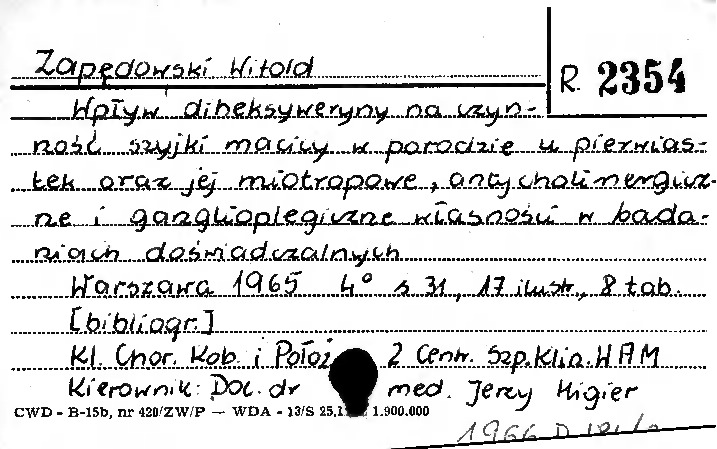 Zapędowski Witold
R. 2354
Wpływ diheksyweryny na czyn-
ność szyjki macicy w porodzie u pierwias-
tek oraz jej miotropowe, antycholinergicz-
ne i ganglioplegiczne własności w bada-
niach doświadczalnych
Warszawa 1965 4° s 31, 17 ilustr., 8 tab.
[bibliogr.]
Kl. Chor. Kob. i Położ. 2 Centr. Szp. Klin. WAM
Kierownik: Doc. dr med. Jerzy Higier
CWD - B-15b, nr 420/ZW/P — WDA - 13/S 25.1 1.900.000
1966 D